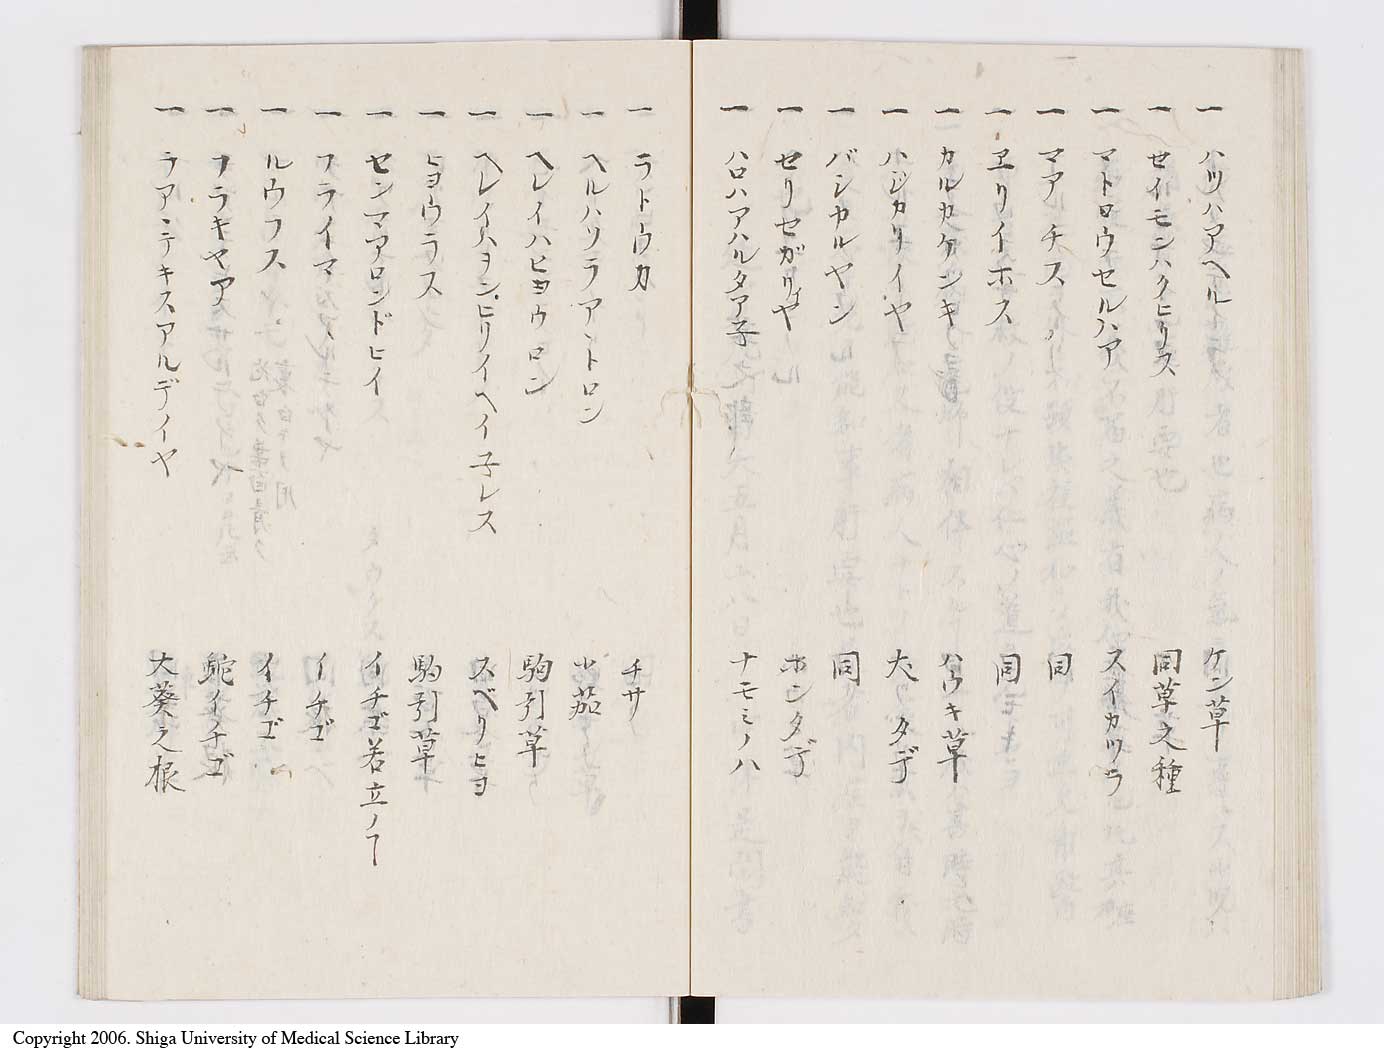 一 ハツハアヘル ケン草
一 セイモンハクヒリス 同草之種
一 マトロウセルハア スイカツラ
一 マアチス 同
一 ヱリイホス 同
一 カルカケンキ ハウキ草
一 ハジカリイヤ 犬タデ
一 バシカルヤン 同
一 セリセガリイヤ ホンタデ
一 ハロハアハルタア子 ナモミノハ
一 ラトウカ チサ
一 ヘルハソラアントロン 小茄
一 ヘレイハヒヨウロン 駒引草
一 ヘレイハヨンヒリイヘイ子レス スベリヒヨ
一 ヒヨウラス 駒引草
一 センマアロンドヒイ イチゴ若立ノ
一 フライマ イチゴ
一 ルウフス イチゴ
一 フラキマアス 蛇イチゴ
一 ラアンテキスアルデイヤ 大葵之根
Copyright 2006. Shiga University of Medical Science Library